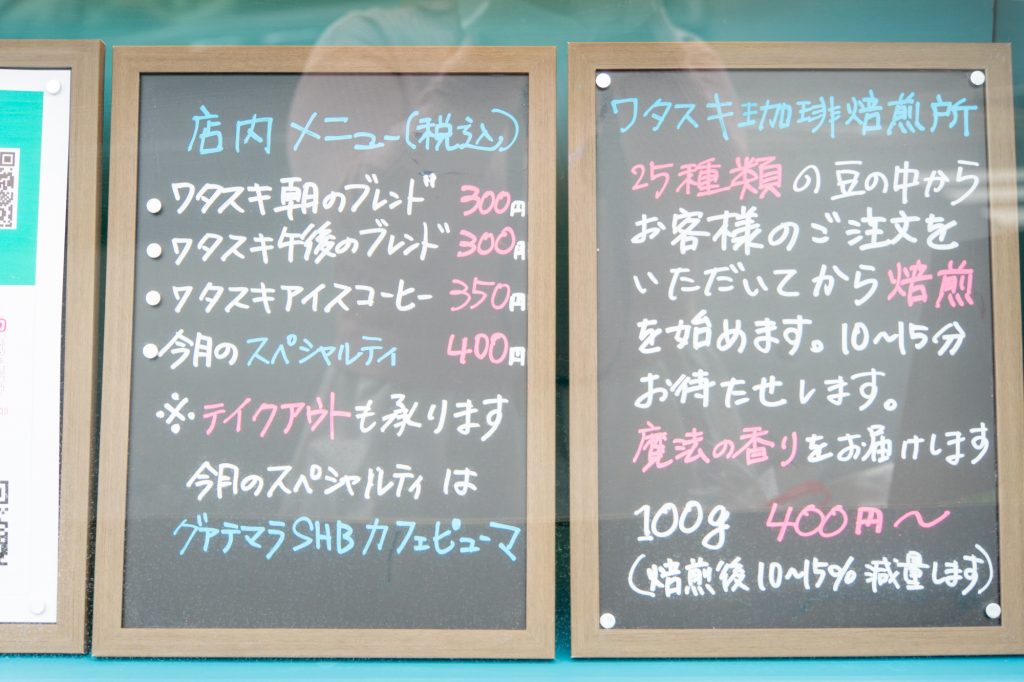 店内メニュー(税込)
•ワタスキ朝のブレンド 300円
•ワタスキ午後のブレンド 300円
•ワタスキアイスコーヒー 350円
•今月のスペシャルティ 400円
※テイクアウトも承ります
今月のスペシャルティは
グァテマラSHBカフェピューマ
ワタスキ珈琲焙煎所
25種類の豆の中から
お客様のご注文を
いただいてから焙煎
を始めます。10〜15分
お待たせします。
魔法の香りをお届けします
100g 400円〜
(焙煎後10〜15%減量します)